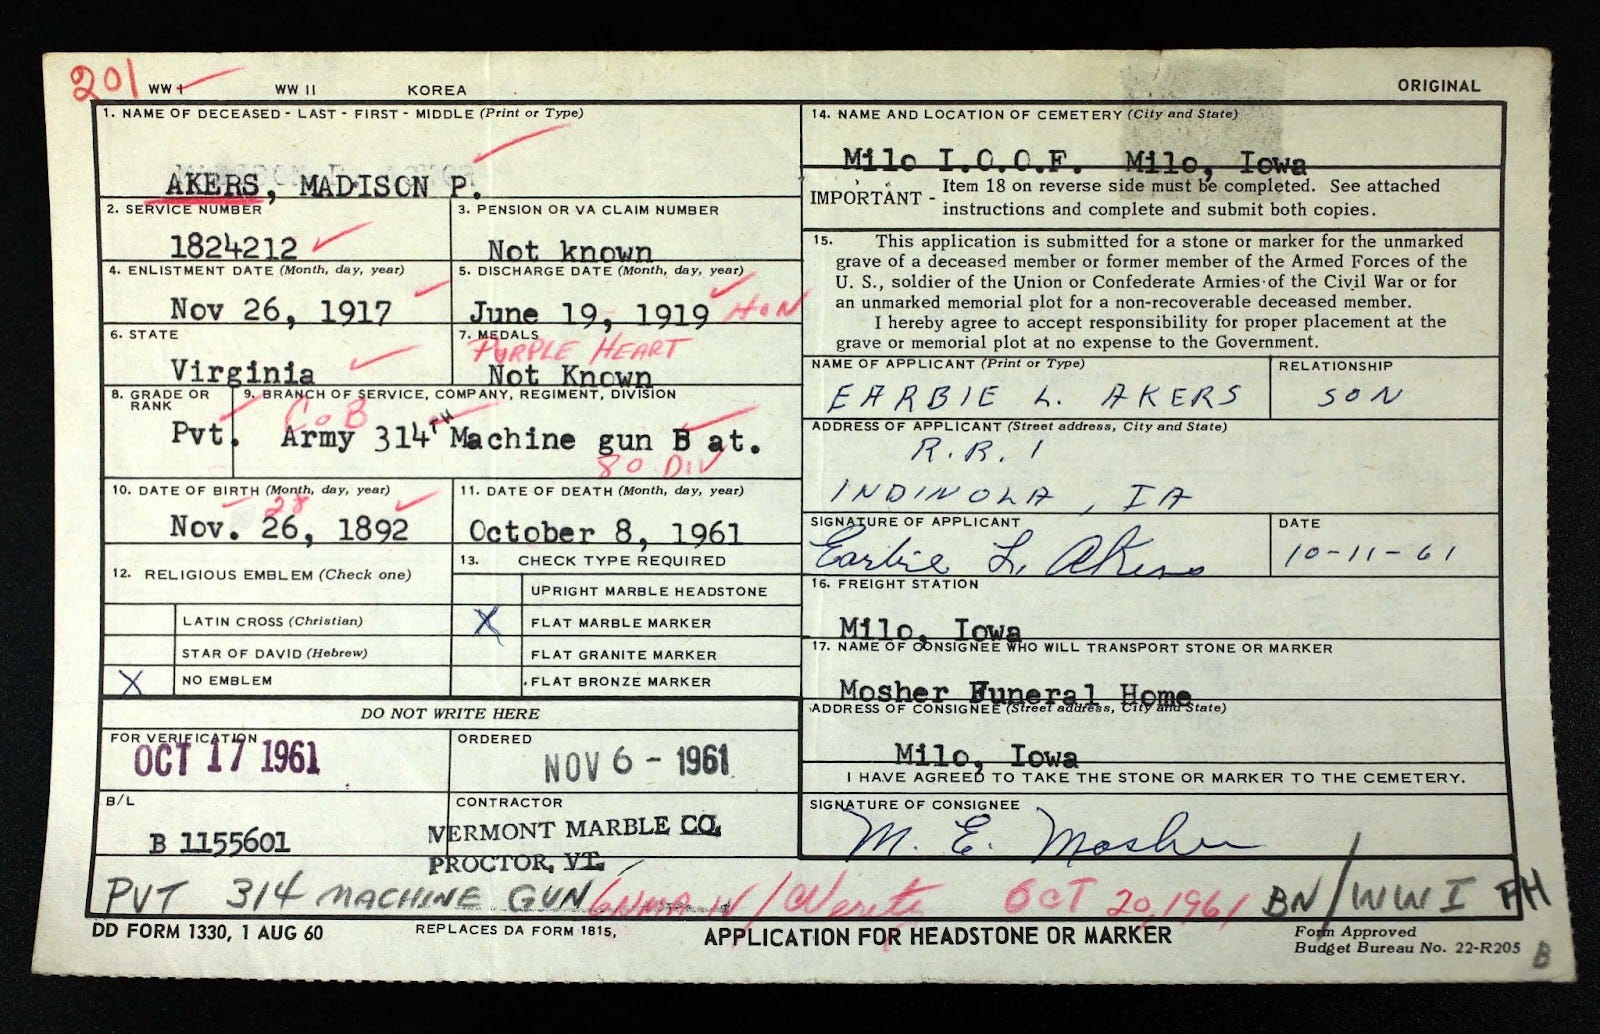 201 WW I WW II KOREA ORIGINAL
1. NAME OF DECEASED - LAST - FIRST - MIDDLE (Print or Type)
AKERS, MADISON P.
2. SERVICE NUMBER
1824212
3. PENSION OR VA CLAIM NUMBER
Not known
4. ENLISTMENT DATE (Month, day, year)
Nov 26, 1917
5. DISCHARGE DATE (Month, day, year)
June 19, 1919 HON
6. STATE
Virginia
7. MEDALS
PURPLE HEART
Not Known
8. GRADE OR RANK
Pvt.
9. BRANCH OF SERVICE, COMPANY, REGIMENT, DIVISION
Co B
Army 314TH Machine gun B at.
80 DIV
10. DATE OF BIRTH (Month, day, year)
28
Nov. 26, 1892
11. DATE OF DEATH (Month, day, year)
October 8, 1961
12. RELIGIOUS EMBLEM (Check one)
LATIN CROSS (Christian)
STAR OF DAVID (Hebrew)
X NO EMBLEM
13. CHECK TYPE REQUIRED
UPRIGHT MARBLE HEADSTONE
X FLAT MARBLE MARKER
FLAT GRANITE MARKER
FLAT BRONZE MARKER
DO NOT WRITE HERE
FOR VERIFICATION
OCT 17 1961
ORDERED
NOV 6 - 1961
B/L
B 1155601
CONTRACTOR
VERMONT MARBLE CO.
PROCTOR, VT.
14. NAME AND LOCATION OF CEMETERY (City and State)
Milo I.O.O.F. Milo, Iowa
IMPORTANT - Item 18 on reverse side must be completed. See attached
instructions and complete and submit both copies.
15. This application is submitted for a stone or marker for the unmarked
grave of a deceased member or former member of the Armed Forces of the
U. S., soldier of the Union or Confederate Armies of the Civil War or for
an unmarked memorial plot for a non-recoverable deceased member.
I hereby agree to accept responsibility for proper placement at the
grave or memorial plot at no expense to the Government.
NAME OF APPLICANT (Print or Type)
EARBIE L. AKERS
RELATIONSHIP
SON
ADDRESS OF APPLICANT (Street address, City and State)
R.R. 1
INDINOLA, IA
SIGNATURE OF APPLICANT
Earbie L. Akers
DATE
10-11-61
16. FREIGHT STATION
Milo, Iowa
17. NAME OF CONSIGNEE WHO WILL TRANSPORT STONE OR MARKER
Mosher Funeral Home
ADDRESS OF CONSIGNEE (Street address, City and State)
Milo, Iowa
I HAVE AGREED TO TAKE THE STONE OR MARKER TO THE CEMETERY.
SIGNATURE OF CONSIGNEE
M. E. Mosher
PVT 314 MACHINE GUN OCT 20, 1961 BN/WW I PH
DD FORM 1330, 1 AUG 60 REPLACES DA FORM 1815, APPLICATION FOR HEADSTONE OR MARKER Form Approved
Budget Bureau No. 22-R205 B